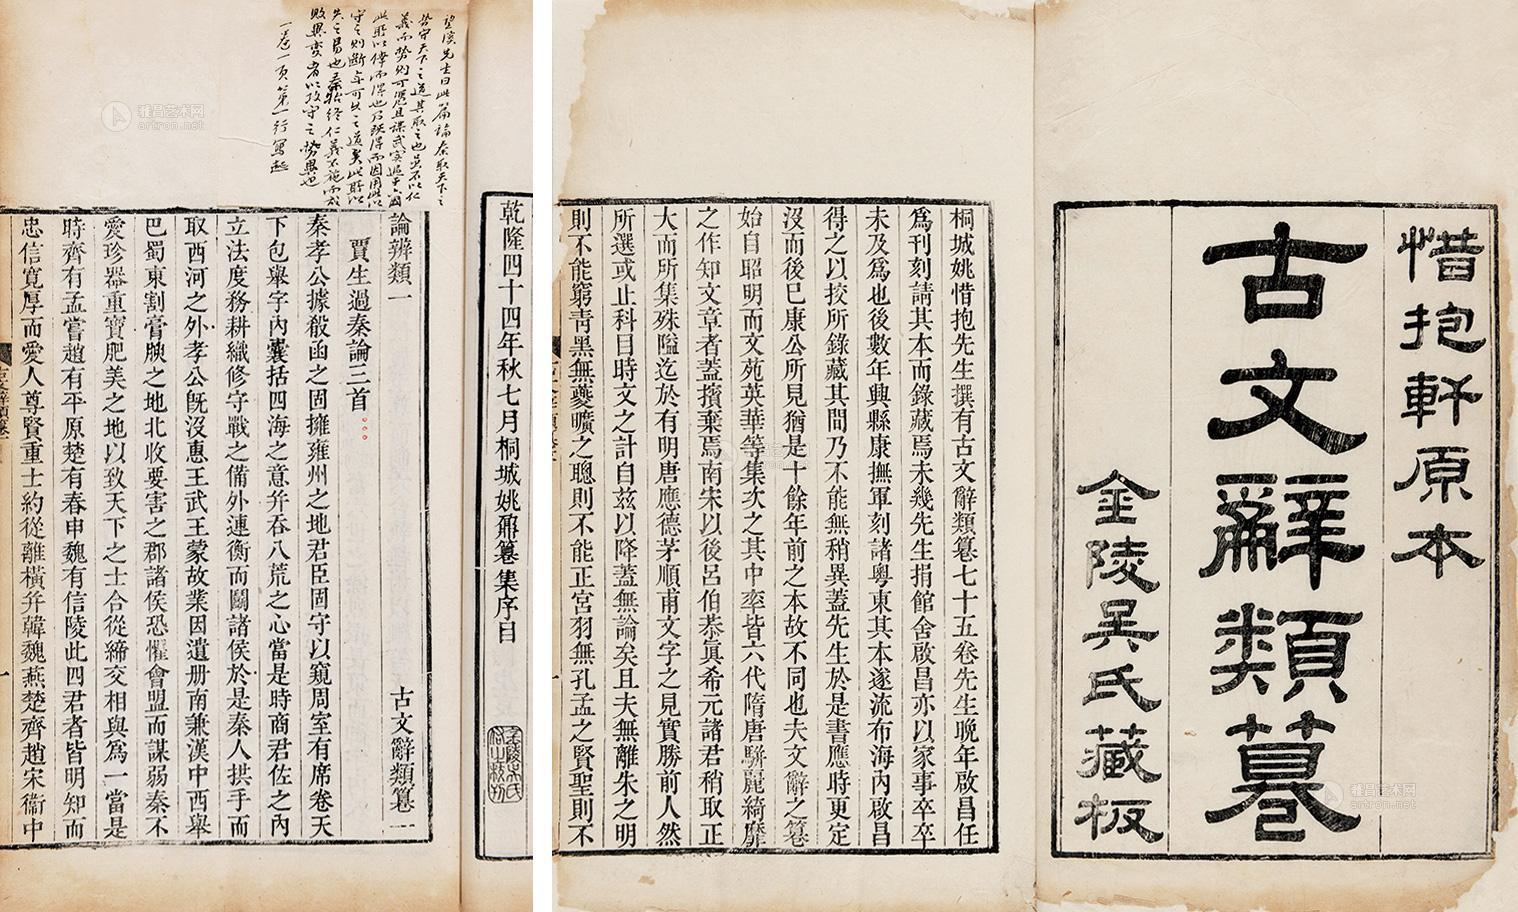 惜抱軒原本
古文辭類篹
金陵吳氏藏板
桐城姚惜抱先生撰有古文辭類篹七十五卷先生晚年啟昌任
爲刊刻請其本而錄藏焉未幾先生捐館舍啟昌亦以家事卒卒
未及爲也後數年興縣康撫軍刻諸粵東其本遂流布海內啟昌
得之以挍所錄藏其間乃不能無稍異蓋先生於是書應時更定
沒而後已康公所見猶是十餘年前之本故不同也夫文辭之篹
始自昭明而文苑英華等集次之其中率皆六代隋唐駢麗綺靡
之作知文章者蓋擯棄焉南宋以後呂伯恭眞希元諸君稍取正
大而所集殊隘迄於有明唐應德茅順甫文字之見實勝前人然
所選或止科目時文之計自茲以降蓋無論矣且夫無離朱之明
則不能窮靑黑無夔曠之聰則不能正宮羽無孔孟之賢聖則不
乾隆四十四年秋七月桐城姚鼐篹集序目
望溪先生曰此篇論秦取天下之
勢守天下之道其取之也雖不以仁
義而勢則可憑且謀武實過于六國
此所以倖而得也乃旣得而因用此以
守之則斷無可久之道矣此所以
失之易也秦始終仁義不施而成
敗異變者以攻守之勢異也
一卷一頁第一行寫起
論辨類一
古文辭類篹一
賈生過秦論三首
秦孝公據殽函之固擁雍州之地君臣固守以窺周室有席卷天
下包舉宇內囊括四海之意并吞八荒之心當是時商君佐之內
立法度務耕織修守戰之備外連衡而鬬諸侯於是秦人拱手而
取西河之外孝公旣沒惠王武王蒙故業因遺册南兼漢中西舉
巴蜀東割膏腴之地北收要害之郡諸侯恐懼會盟而謀弱秦不
愛珍器重寶肥美之地以致天下之士合從締交相與爲一當是
時齊有孟嘗趙有平原楚有春申魏有信陵此四君者皆明知而
忠信寬厚而愛人尊賢重士約從離橫并韓魏燕楚齊趙宋衞中
雅昌艺术网
artron.net
雅昌艺术网
artron.net